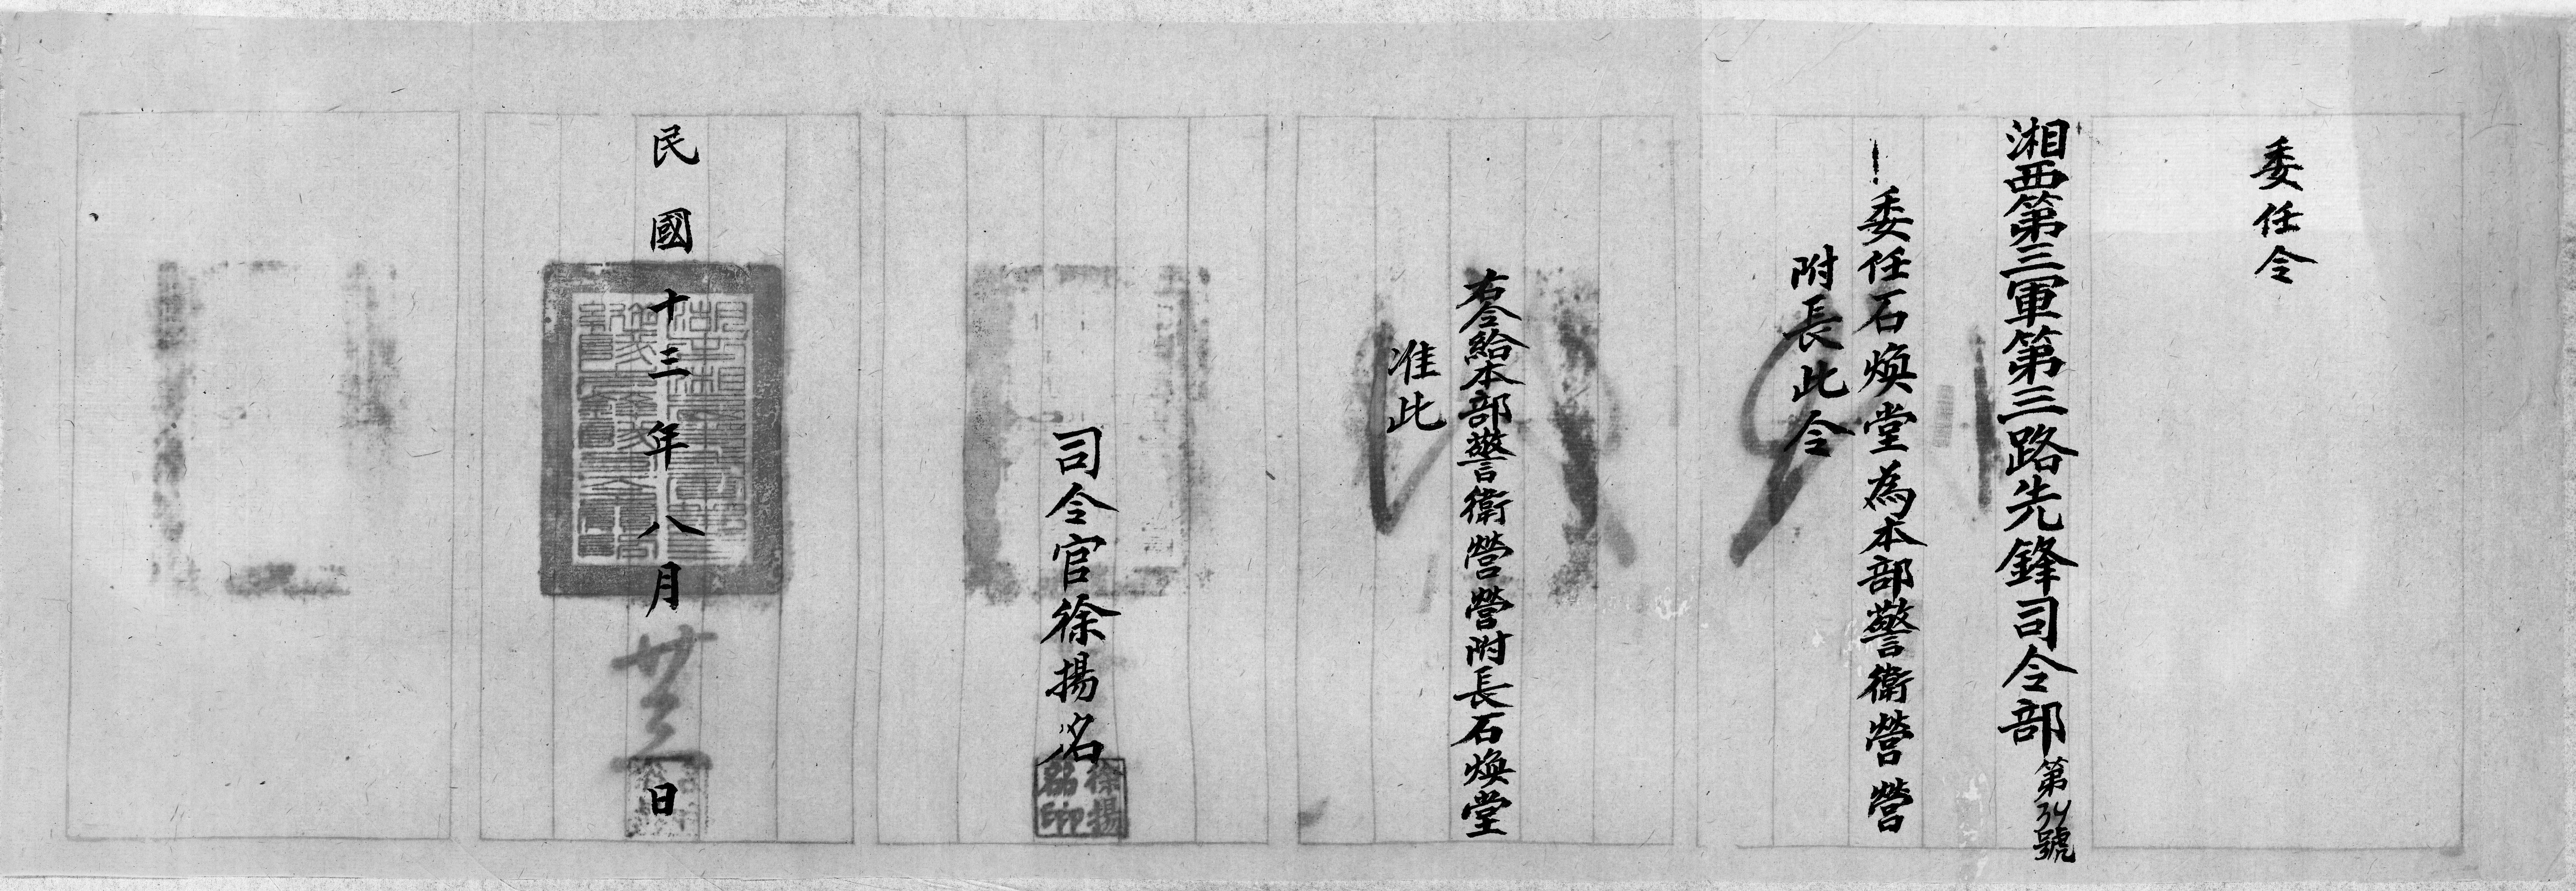 委任令
湘西第三軍第三路先鋒司令部第34號
一委任石煥堂為本部警衛營營
附長此令
右令給本部警衛營營附長石煥堂
准此
司令官徐揚名
徐揚名印
民國十三年八月廿三日